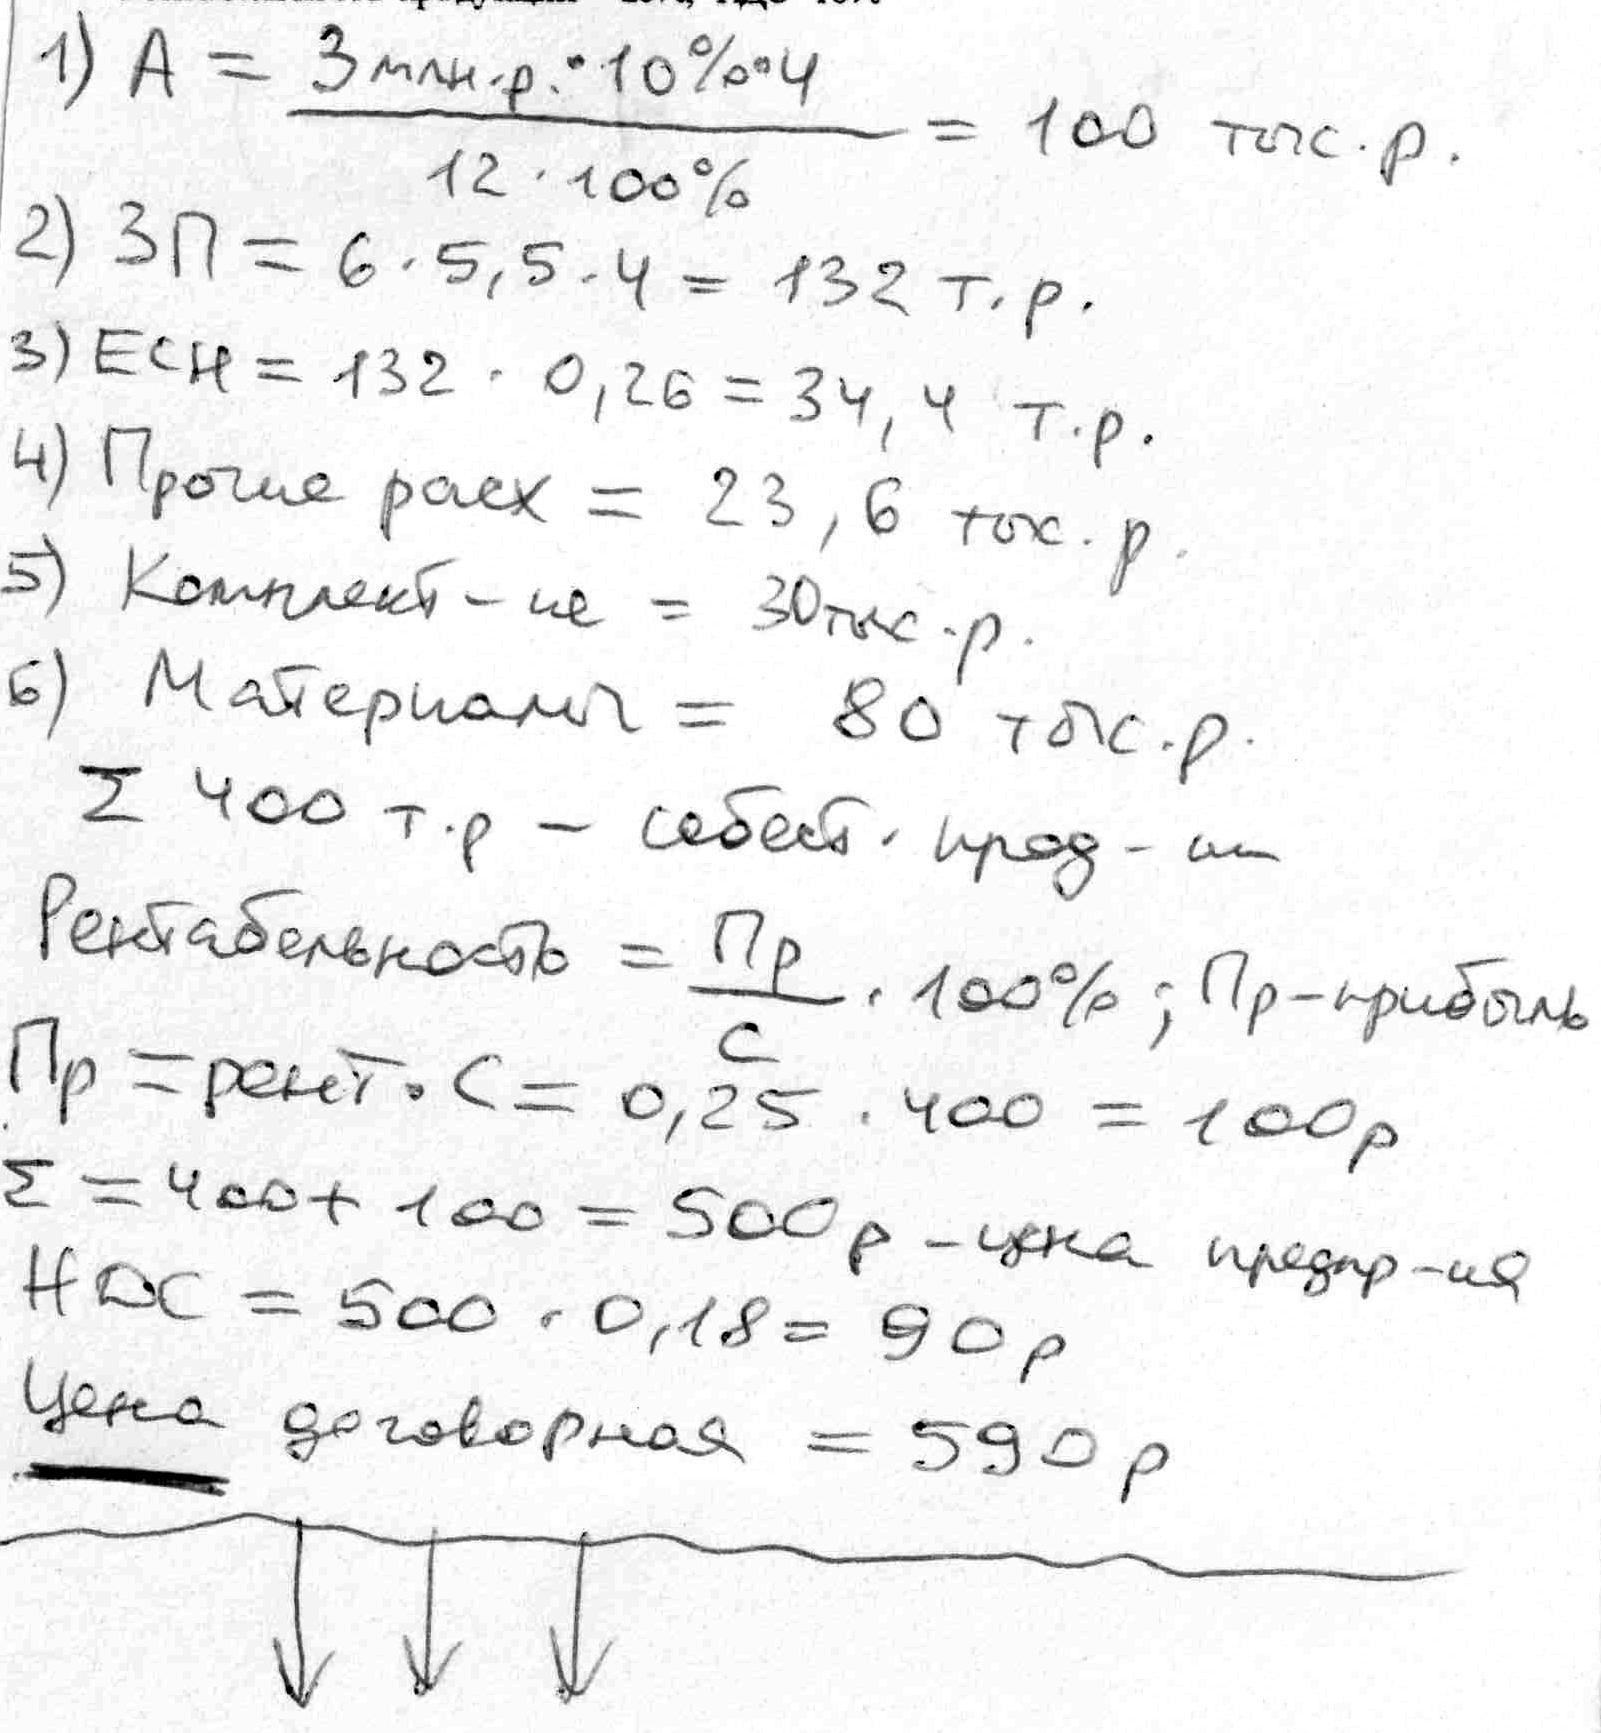 1) А = 3 млн.р. · 10% · 4 / 12 · 100% = 100 тыс.р.
2) ЗП = 6 · 5,5 · 4 = 132 т.р.
3) ЕСН = 132 · 0,26 = 34,4 т.р.
4) Прочие расх = 23,6 тыс.р.
5) Комплект-ие = 30 тыс.р.
6) Материалы = 80 тыс.р.
Σ 400 т.р – себест. прод-ии
Рентабельность = Пр / С · 100% ; Пр – прибыль
Пр = рент · С = 0,25 · 400 = 100р
Σ = 400 + 100 = 500р – цена предпр-ия
НДС = 500 · 0,18 = 90р
Цена договорная = 590р